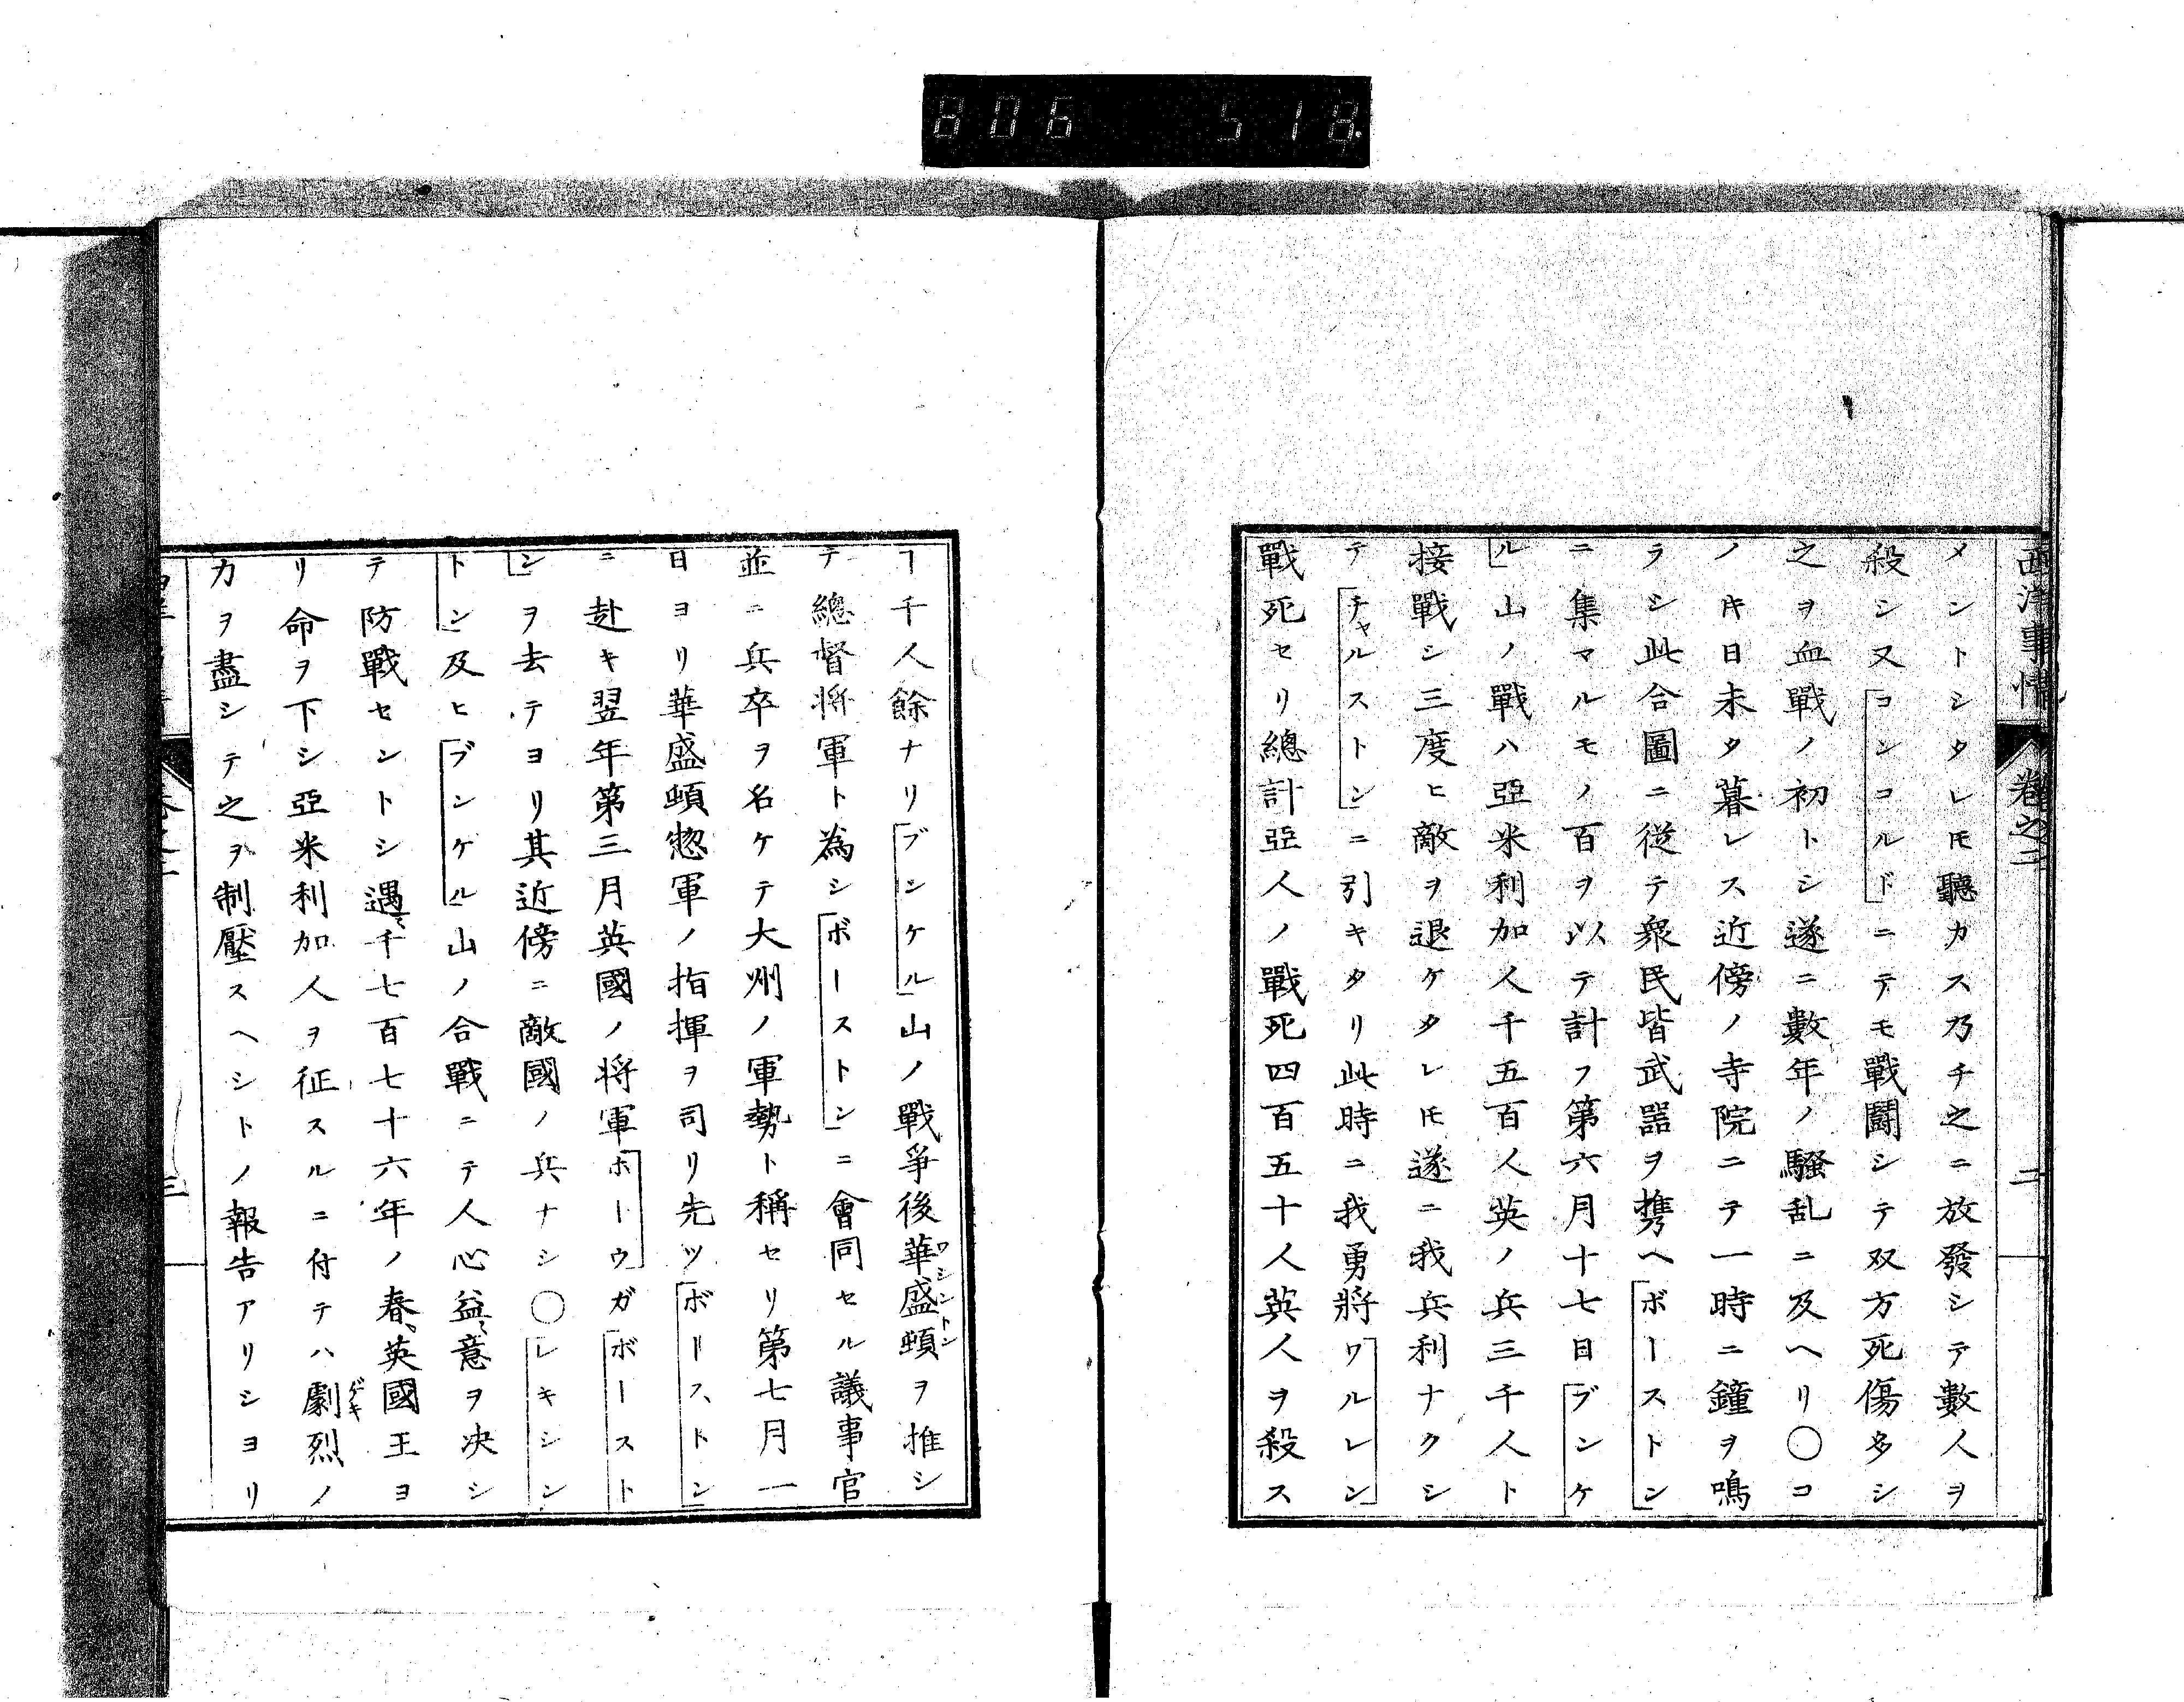 806 518.
西洋事情 卷之二 二
メントシタレ𪜈聽カス乃チ之ニ放發シテ數人ヲ
殺シ又「コンコルド」ニテモ戰鬪シテ双方死傷多シ
之ヲ血戰ノ初トシ遂ニ數年ノ騷乱ニ及ヘリ〇コ
ノ𪜈日未タ暮レス近傍ノ寺院ニテ一時ニ鐘ヲ鳴
ラシ此合圖ニ從テ衆民皆武器ヲ携ヘ「ボーストン」
ニ集マルモノ百ヲ以テ計フ第六月十七日「ブンケ
ル」山ノ戰ハ亞米利加人千五百人英ノ兵三千人ト
接戰シ三度ヒ敵ヲ退ケタレ𪜈遂ニ我兵利ナクシ
テ「チャルストン」ニ引キタリ此時ニ我勇將「ワルレン」
戰死セリ總計亞人ノ戰死四百五十人英人ヲ殺ス
ヿ千人餘ナリ「ブンケル」山ノ戰爭後華盛頓ワシントンヲ推シ
テ總督將軍ト為シ「ボーストン」ニ會同セル議事官
並ニ兵卒ヲ名ケテ大州ノ軍勢ト稱セリ第七月一
日ヨリ華盛頓惣軍ノ指揮ヲ司リ先ツ「ボーストン」
ニ赴キ翌年第三月英國ノ將軍「ホーウ」ガ「ボースト
ン」ヲ去テヨリ其近傍ニ敵國ノ兵ナシ〇「レキシン
トン」及ヒ「ブンケル」山ノ合戰ニテ人心益〻意ヲ決シ
テ防戰セントシ遇〻千七百七十六年ノ春英國王ヨ
リ命ヲ下シ亞米利加人ヲ征スルニ付テハ劇ゲキ烈ノ
力ヲ盡シテ之ヲ制壓スヘシトノ報告アリシヨリ
三